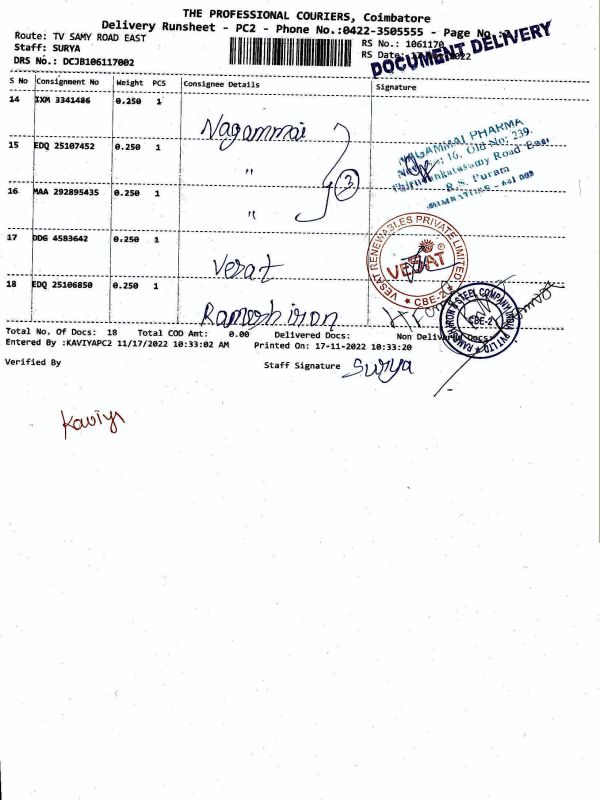 THE PROFESSIONAL COURIERS, Coimbatore
Delivery Runsheet - PC2 - Phone No.:0422-3505555 - Page No.
Route: TV SAMY ROAD EAST
RS No.: 1061170
Staff: SURYA
RS Date:
DOCUMENT DELIVERY
DRS No.: DCJB106117002
S No Consignment No Weight PCS Consignee Details Signature
14 IXM 3341486 0.250 1 Nagammai
15 EDQ 25107452 0.250 1 "
3
NAGAMMAI PHARMA
16, Old No: 239,
Road East
R.S. Puram
16 MAA 292895435 0.250 1 "
17 DDG 4583642 0.250 1 Vesat
VESAT RENEWABLES PRIVATE LIMITED
VESAT
CBE-2
18 EDQ 25106850 0.250 1 Ramesh iron
STEEL COMPANY INDIA PVT LTD
CBE-2
Total No. Of Docs: 18 Total COD Amt: 0.00 Delivered Docs: Non Delivered Docs:
Entered By :KAVIYAPC2 11/17/2022 10:33:02 AM Printed On: 17-11-2022 10:33:20
Verified By Staff Signature Surya
Kaviya